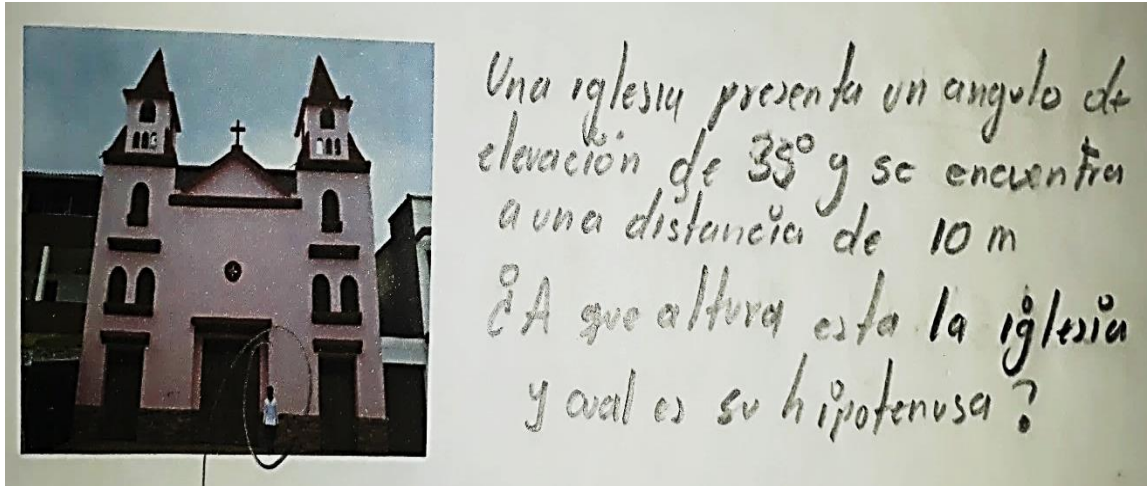 Una iglesia presenta un angulo de
elevación de 35° y se encuentra
a una distancia de 10 m
¿A que altura esta la iglesia
y cual es su hipotenusa?